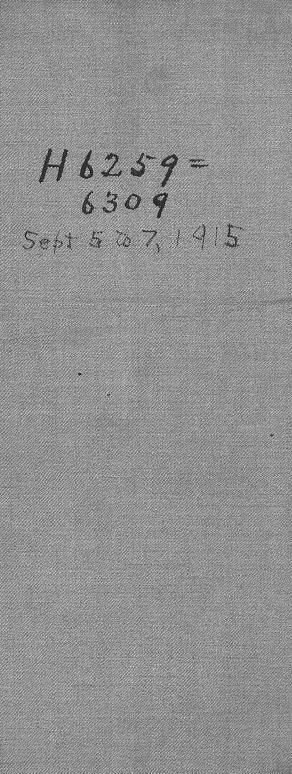 H 6259=
6309
Sept 5 to 7, 1915